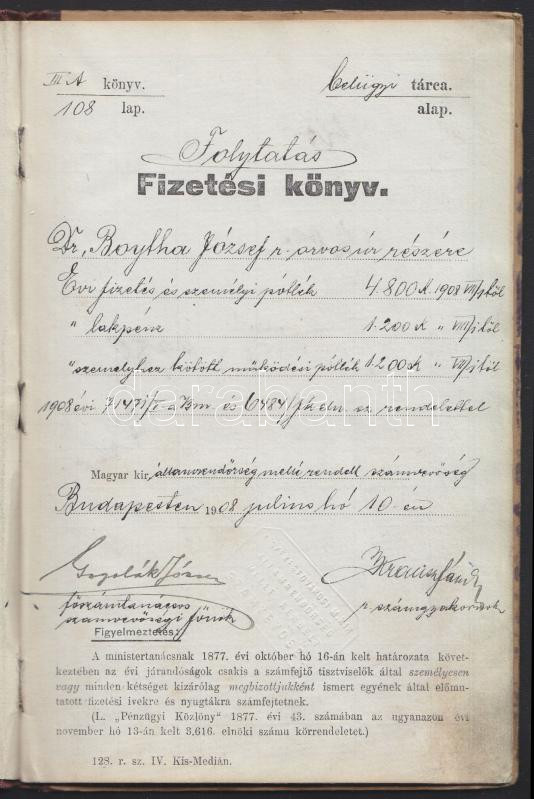 III A könyv. Belügyi tárca.
108 lap. alap.
Folytatás
Fizetési könyv.
Dr. Boytha József r. orvos úr részére
Évi fizetés és személyi pótlék 4.800 K 1908 VII/1től
" lakpénz 1.200 K " VIII/1től
"személyhez kötött működési pótlék 1.200 K " VII/1től
1908 évi és eln. sz. rendelettel
Magyar kir. államrendőrség mellé rendelt számvevőség
Budapesten 1908 julius hó 10-én
József
főszámtanácsos r. számgyakornok
számvevőségi főnök
Figyelmeztetés:
A ministertanácsnak 1877. évi október hó 16-án kelt határozata követ-
keztében az évi járandóságok csakis a számfejtő tisztviselők által személyesen
vagy minden kétséget kizárólag megbizottjukként ismert egyének által előmu-
tatott fizetési ivekre és nyugtákra számfejtetnek.
(L. „Pénzügyi Közlöny" 1877. évi 43. számában az ugyanazon évi
november hó 13-án kelt 3,616. elnöki számu körrendeletet.)
128. r. sz. IV. Kis-Medián.
darabanth